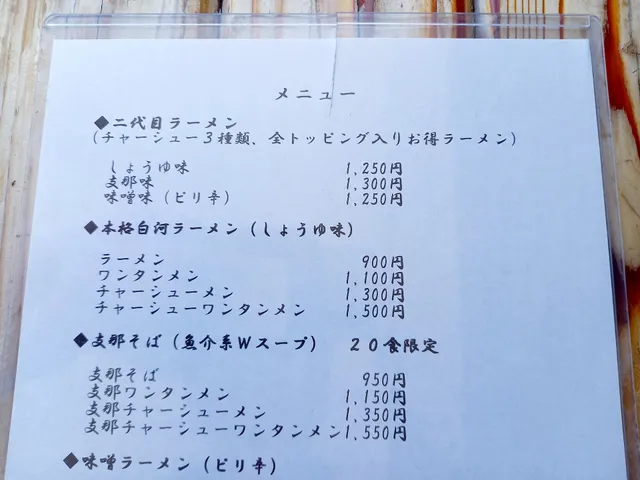 メニュー
◆二代目ラーメン
(チャーシュー3種類、全トッピング入りお得ラーメン)
しょうゆ味 1,250円
支那味 1,300円
味噌味(ピリ辛) 1,250円
◆本格白河ラーメン(しょうゆ味)
ラーメン 900円
ワンタンメン 1,100円
チャーシューメン 1,300円
チャーシューワンタンメン 1,500円
◆支那そば(魚介系Wスープ) 20食限定
支那そば 950円
支那ワンタンメン 1,150円
支那チャーシューメン 1,350円
支那チャーシューワンタンメン1,550円
◆味噌ラーメン(ピリ辛)